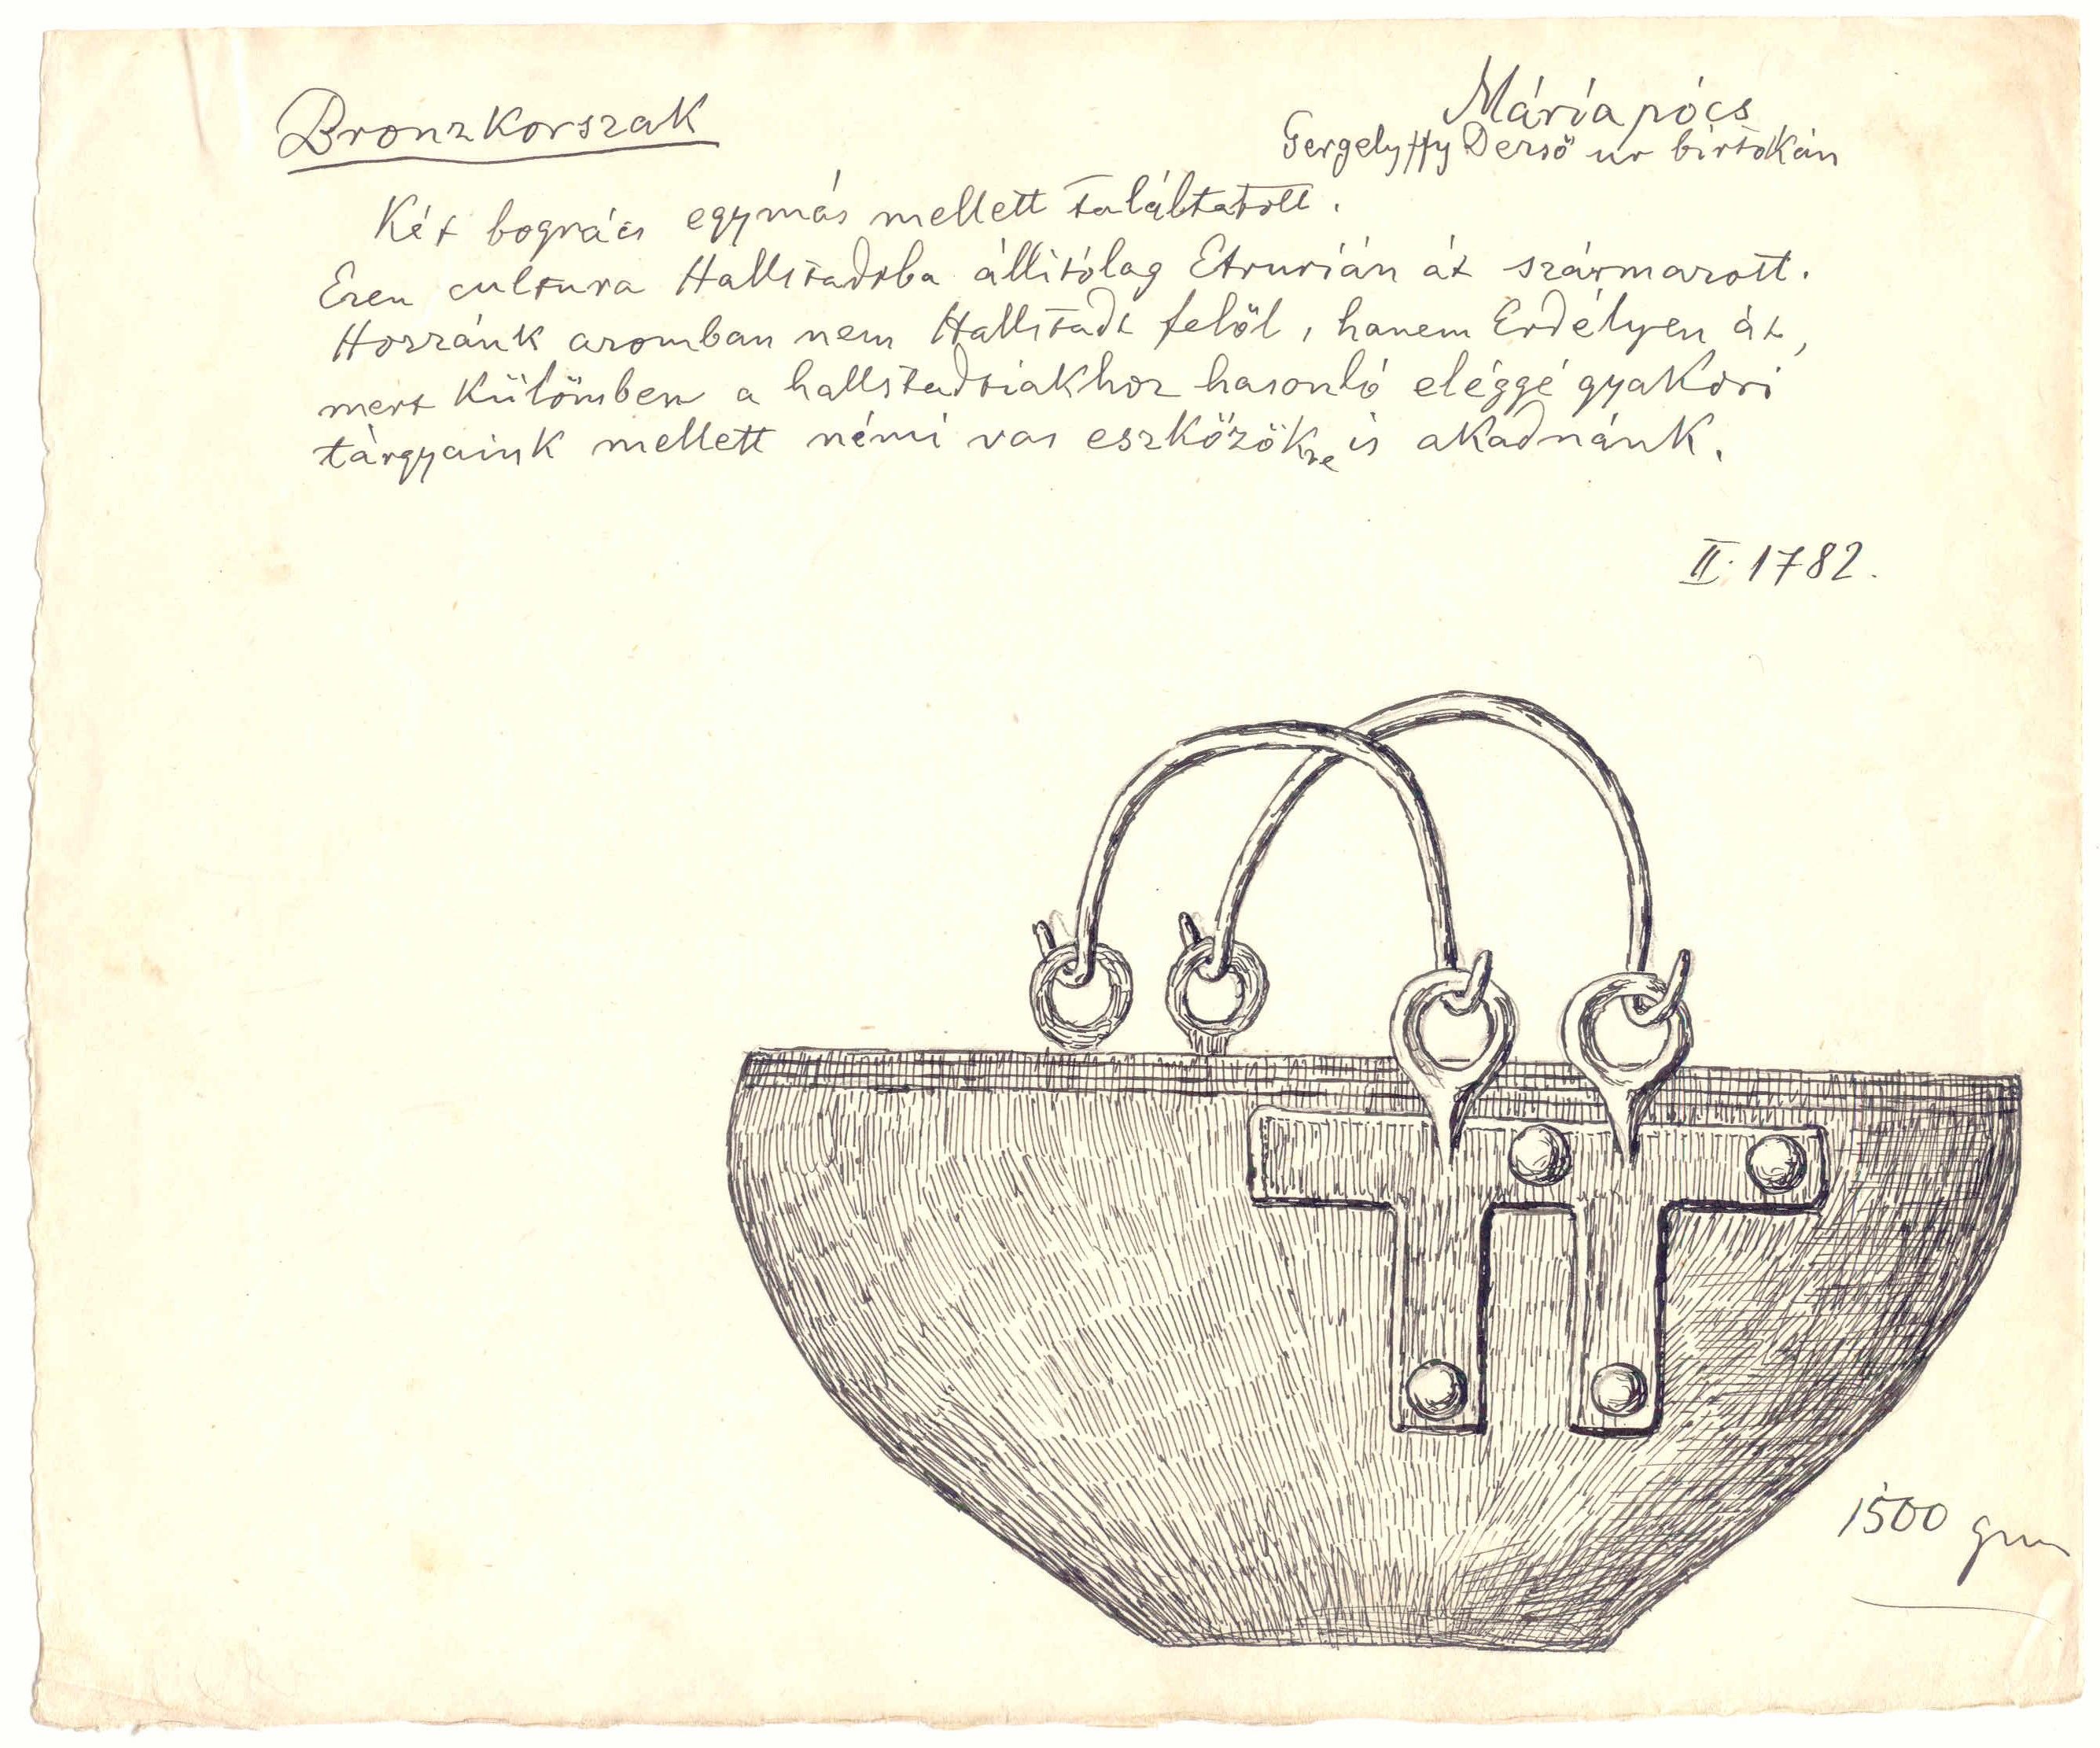 Bronzkorszak
Máriapócs
Gergelyffy Dezső ur birtokán
Két bogrács egymás mellett találtatott.
Ezen cultura Hallstadtba állitólag Etrurián át származott.
Hozzánk azomban nem Hallstadt felől, hanem Erdélyen át,
mert külömben a hallstadtiakhoz hasonló eléggé gyakori
tárgyaink mellett némi vas eszközökre is akadnánk.
II. 1782.
1500 grm